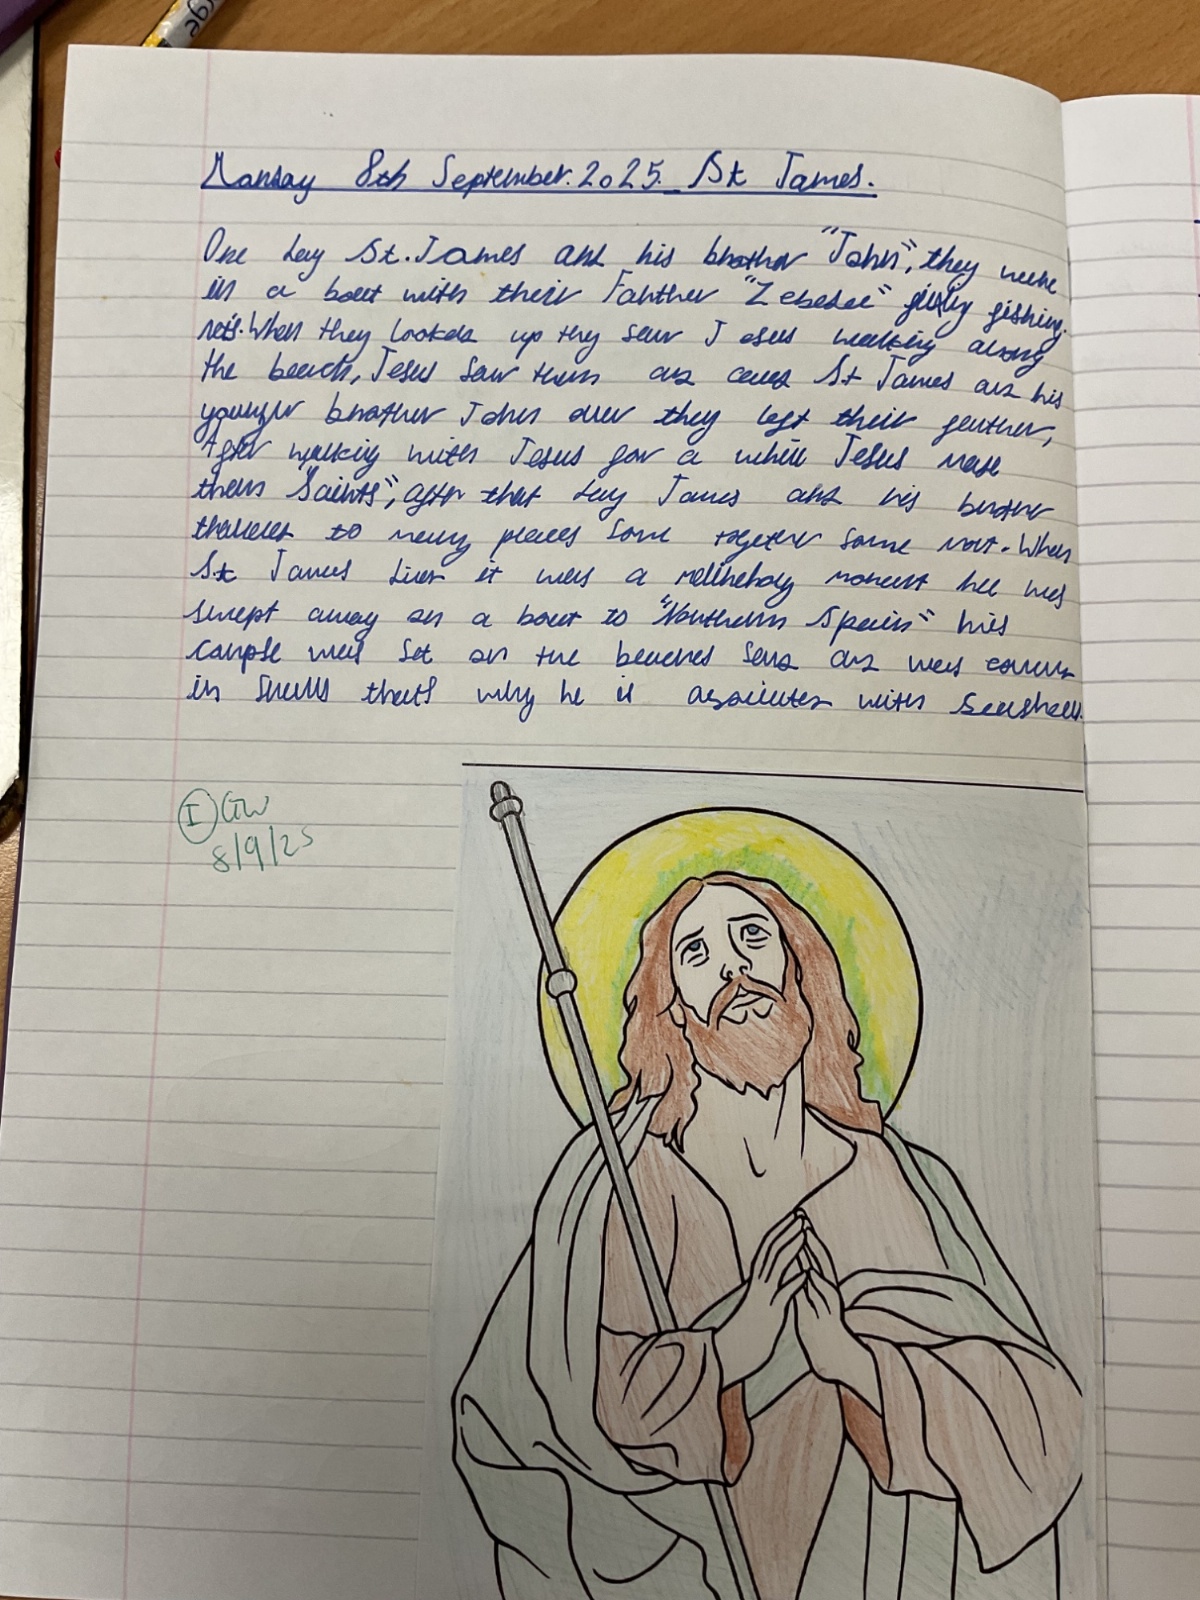 Monday 8th September. 2025. St James.
One day St. James and his brother "John", they were
in a boat with their Fahther "Zebedee" fishing
nets. When they looked up they saw Jesus walking along
the beach, Jesus saw them and St James and his
younger brother John over they left their father,
After walking with Jesus for a while Jesus made
them "Saints", after that day James and his brother
to many places some together some not. When
St James died it was a moment he was
swept away on a boat to "Northern Spain" his
was set on the beaches sand and was
in shells that's why he is with Seashells.
I GW
8/9/25